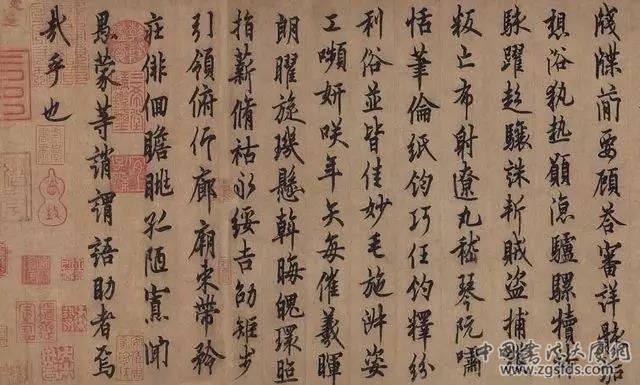 牋牒簡要顧答審詳骸垢
想浴執熱願涼驢騾犢
駭躍超驤誅斬賊盜捕
叛亡布射遼丸嵇琴阮嘯
恬筆倫紙鈞巧任釣釋紛
利俗並皆佳妙毛施淑姿
工嚬妍咲年矢每催羲暉
朗曜旋璣懸斡晦魄環照
指薪脩祜永綏吉劭矩步
引領俯仰廊廟束帶矜
莊徘徊瞻眺孤陋寡聞
愚蒙等誚謂語助者焉
哉乎也
www.zgsfds.com